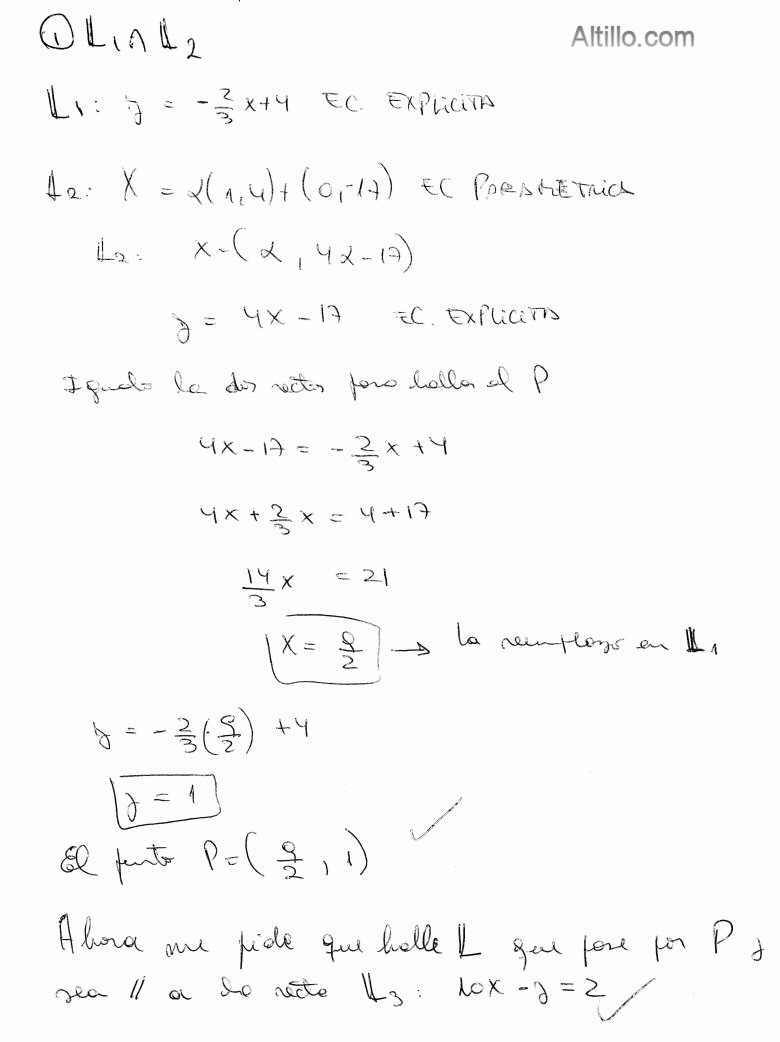 ① L₁ ∩ L₂
Altillo.com
L₁: y = -2/3 x + 4 EC. EXPLICITA
L₂: X = α(1,4)+(0,-17) EC PARAMETRICA
L₂: x-(α, 4α-17)
y = 4x - 17 EC. EXPLICITA
Igualo las dos rectas para hallar el P
4x - 17 = -2/3 x + 4
4x + 2/3 x = 4 + 17
14/3 x = 21
x = 9/2 → la reemplazo en L₁
y = -2/3 (9/2) + 4
y = 1
El punto P = (9/2, 1) ✓
Ahora me pide que halle L que pase por P y
sea // a la recta L₃: 10x - y = 2 ✓